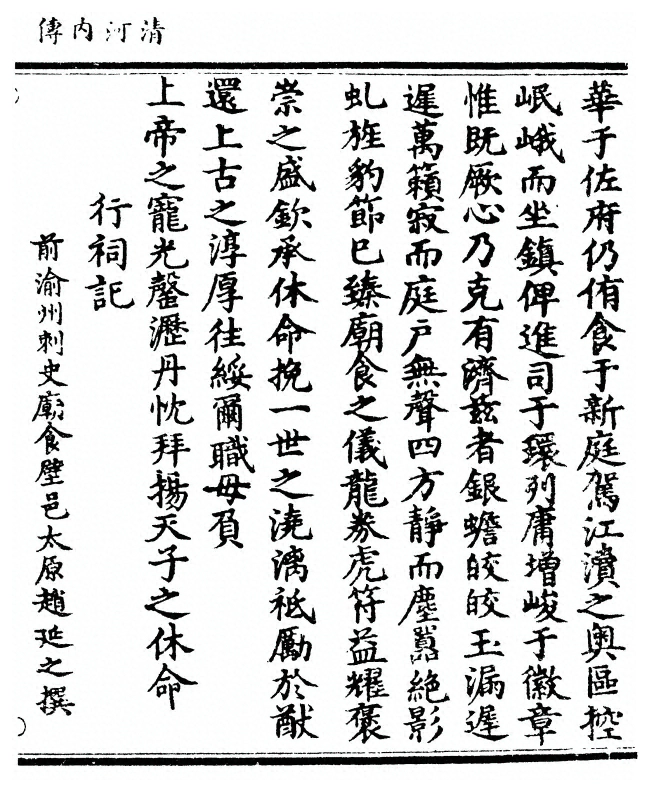 清河內傳
華于佐府仍侑食于新庭駕江瀆之奧區控
岷峨而坐鎮俾進司于環列庸增峻于徽章
惟既厥心乃克有濟兹者銀蟾皎皎玉漏遲
遲萬籟寂而庭戶無聲四方靜而塵囂絕影
虬旌豹節已臻廟食之儀龍券虎符益耀褒
崇之盛欽承休命挽一世之澆漓祗勵於猷
還上古之淳厚往綏爾職毋負
上帝之寵光罄瀝丹忱拜揚天子之休命
行祠記
前渝州刺史廟食壁邑太原趙延之撰